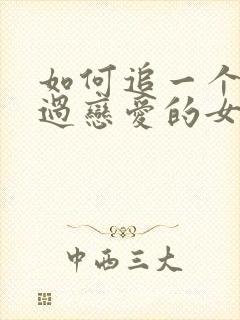 如何追一个
過戀愛的女
中西三大